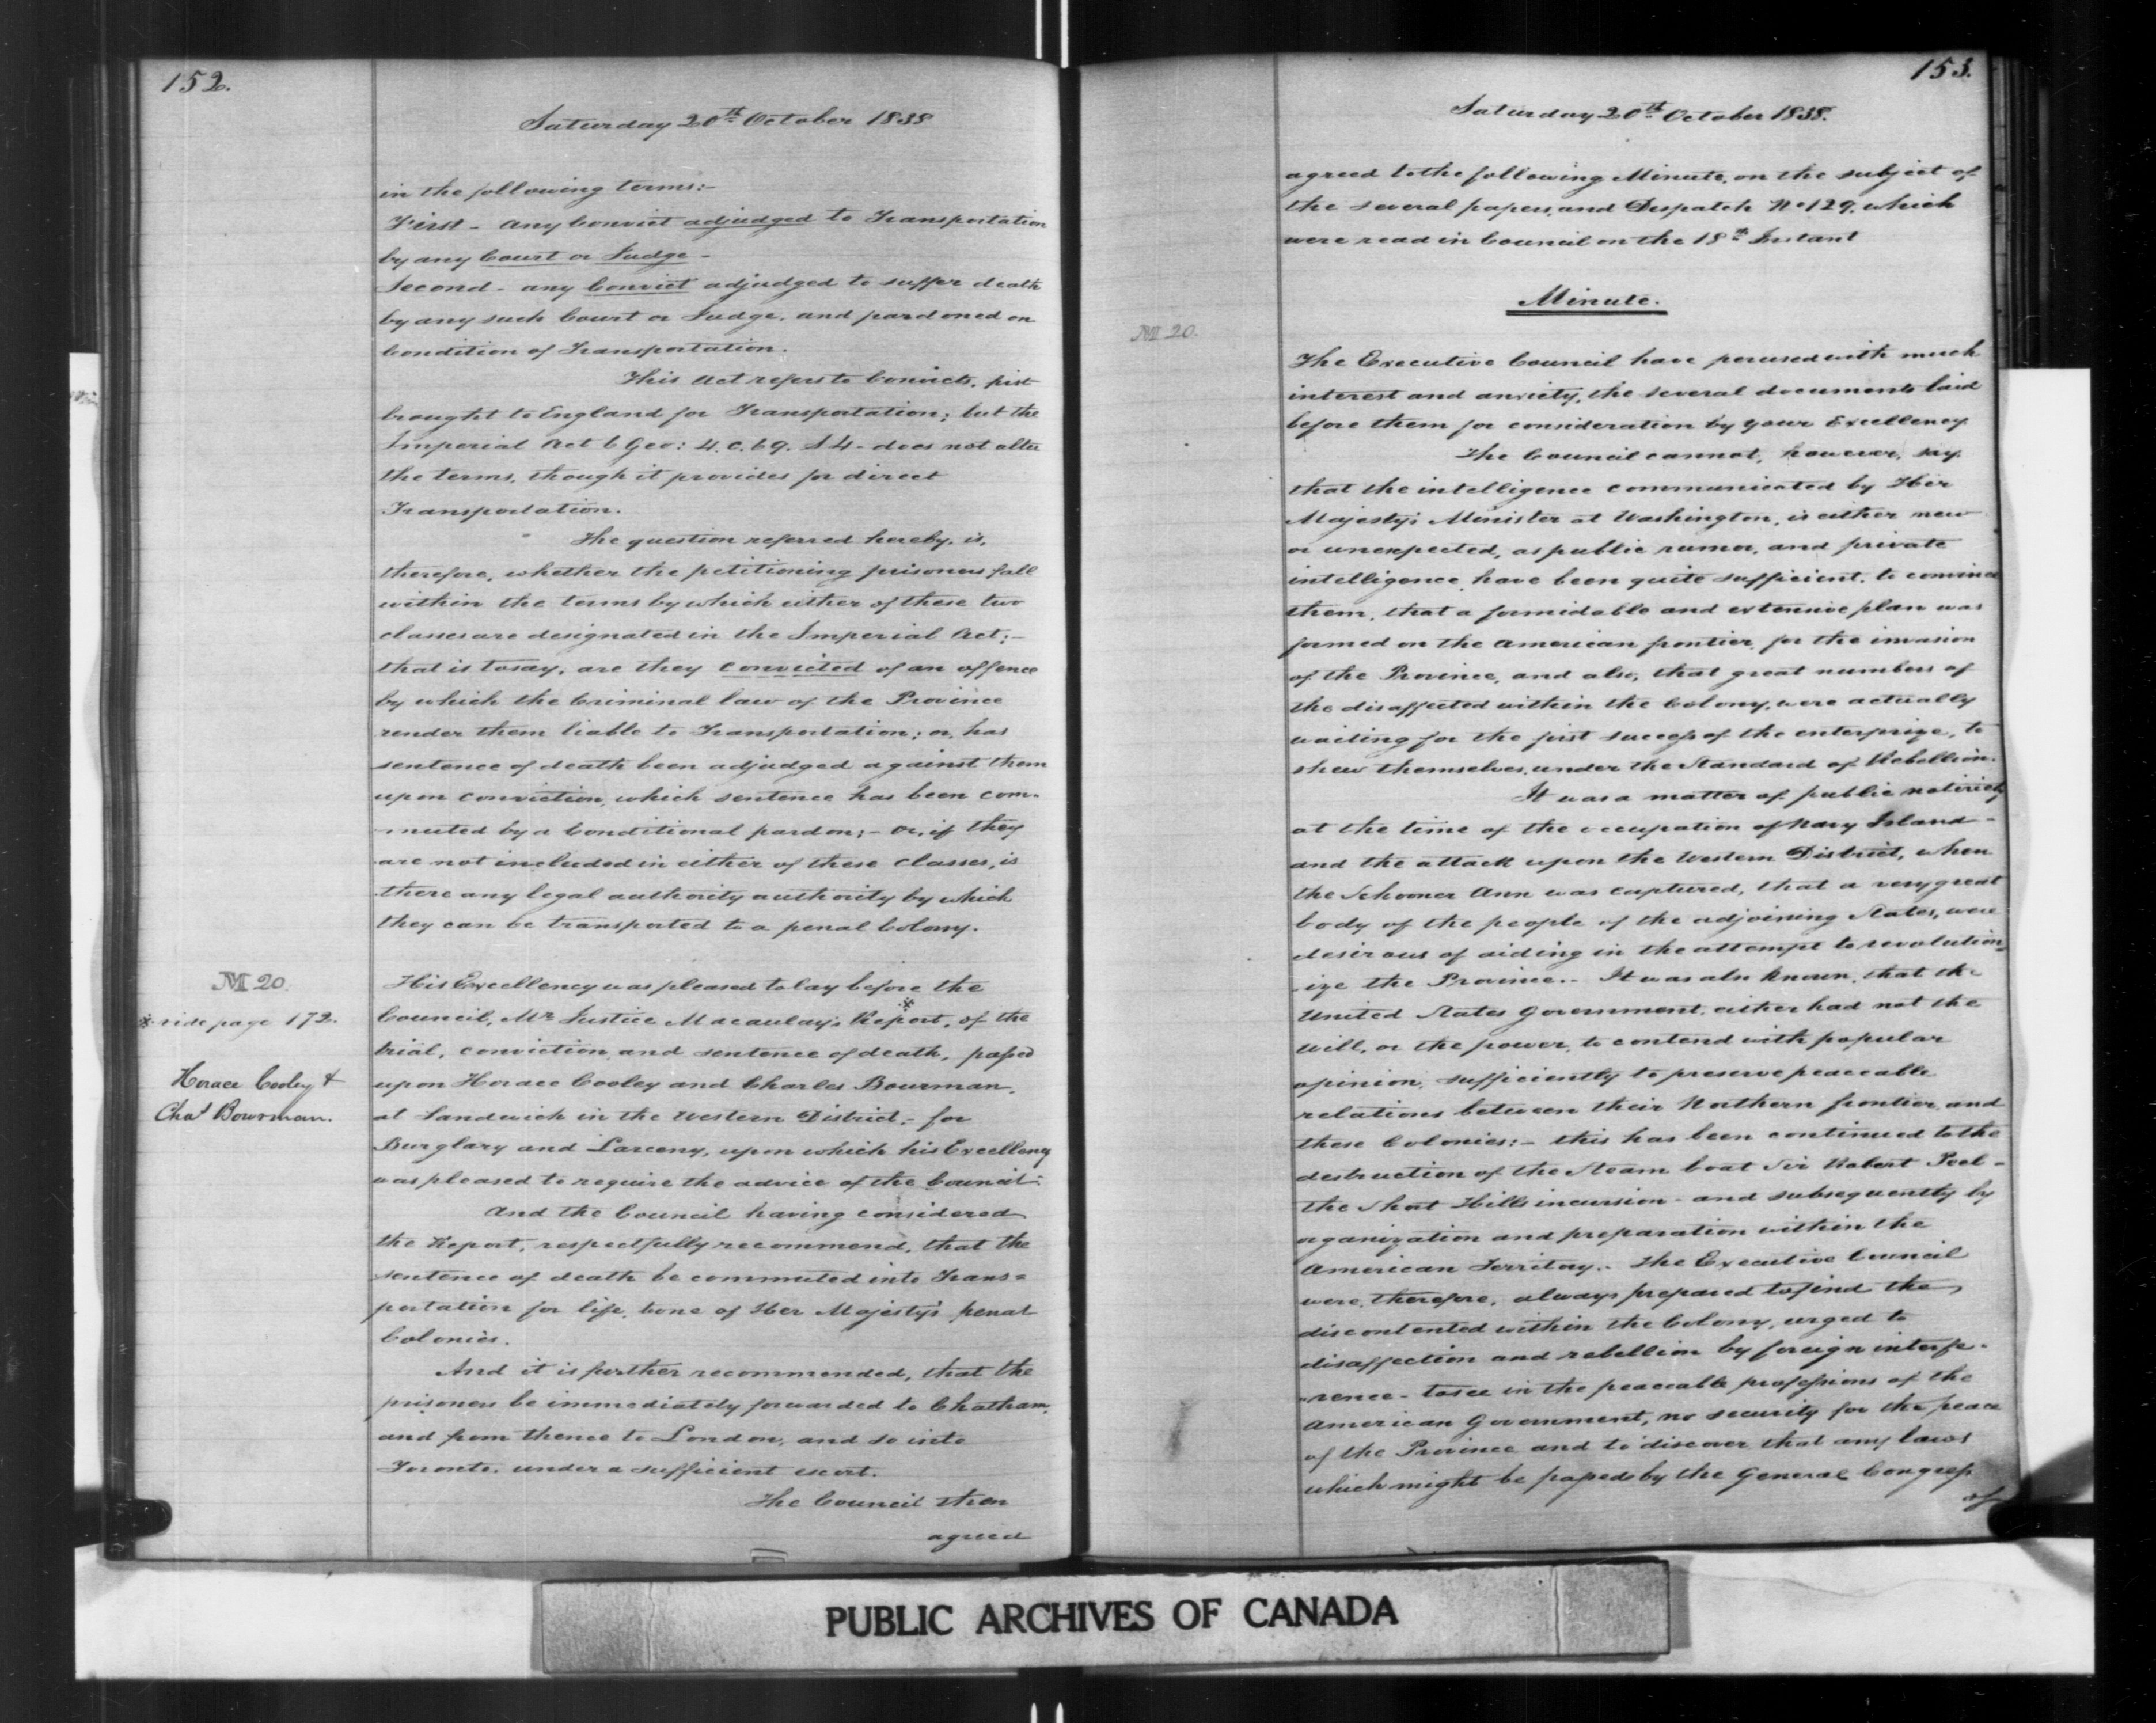 152.
Saturday 20th October 1838
in the following terms:-
First - any Convict adjudged to Transportation
by any Court or Judge -
Second - any Convict adjudged to suffer death
by any such Court or Judge, and pardoned on
Condition of Transportation.
This Act refers to Convicts, first
brought to England for Transportation; but the
Imperial Act 6 Geo: 4. C. 69. S 4 - does not alter
the terms, though it provides for direct
Transportation.
The question referred hereby, is,
therefore, whether the petitioning prisoners fall
within the terms by which either of these two
classes are designated in the Imperial Act; -
that is to say, are they convicted of an offence
by which the Criminal law of the Province
render them liable to Transportation; or, has
sentence of death been adjudged against them
upon conviction, which sentence has been com-
-muted by a Conditional pardon; - Or, if they
are not included in either of these classes, is
there any legal authority authority by which
they can be transported to a penal Colony.
M 20.
His Excellency was pleased to lay before the
* vide page 172.
Council, Mr Justice Macaulay's Report,* of the
trial, conviction and sentence of death, passed
Horace Cooley &
Chas Bowman.
upon Horace Cooley and Charles Bowman,
at Sandwich in the Western District - for
Burglary and Larceny, upon which his Excellency
was pleased to require the advice of the Council.
And the Council having considered
the Report, respectfully recommend, that the
sentence of death be commuted into Trans=
portation for life, to one of Her Majesty's penal
Colonies.
And it is further recommended, that the
prisoners be immediately forwarded to Chatham,
and from thence to London, and so into
Toronto, under a sufficient escort.
The Council then
agreed
153.
Saturday 20th October 1838.
agreed to the following Minute, on the subject of
the several papers, and Despatch No 129, which
were read in Council on the 18th Instant
Minute.
M 20.
The Executive Council have perused with much
interest and anxiety, the several documents laid
before them for consideration by your Excellency.
The Council cannot, however, say
that the intelligence communicated by Her
Majesty's Minister at Washington, is either new
or unexpected, as public rumor, and private
intelligence have been quite sufficient, to convince
them, that a formidable and extensive plan was
formed on the American frontier, for the invasion
of the Province, and also, that great numbers of
the disaffected within the Colony, were actually
waiting for the first success of the enterprize, to
shew themselves, under the Standard of Rebellion.
It was a matter of public notoriety
at the time of the occupation of Navy Island -
and the attack upon the Western District, when
the Schooner Ann was captured, that a very great
body of the people of the adjoining States, were
desirous of aiding in the attempt to revolution=
-ize the Province. - It was also known, that the
United States Government, either had not the
will, or the power, to contend with popular
opinion, sufficiently to preserve peaceable
relations between their Northern frontier, and
these Colonies: - this has been continued to the
destruction of the Steam boat Sir Robert Peel -
the Short Hills incursion - and subsequently by
organization and preparation within the
American Territory. - The Executive Council
were, therefore, always prepared to find the
discontented within the Colony, urged to
disaffection and rebellion by foreign interfe-
-rence - to see in the peaceable professions of the
American Government, no security for the peace
of the Province and to discover that any laws
which might be passed by the General Congress
of
PUBLIC ARCHIVES OF CANADA